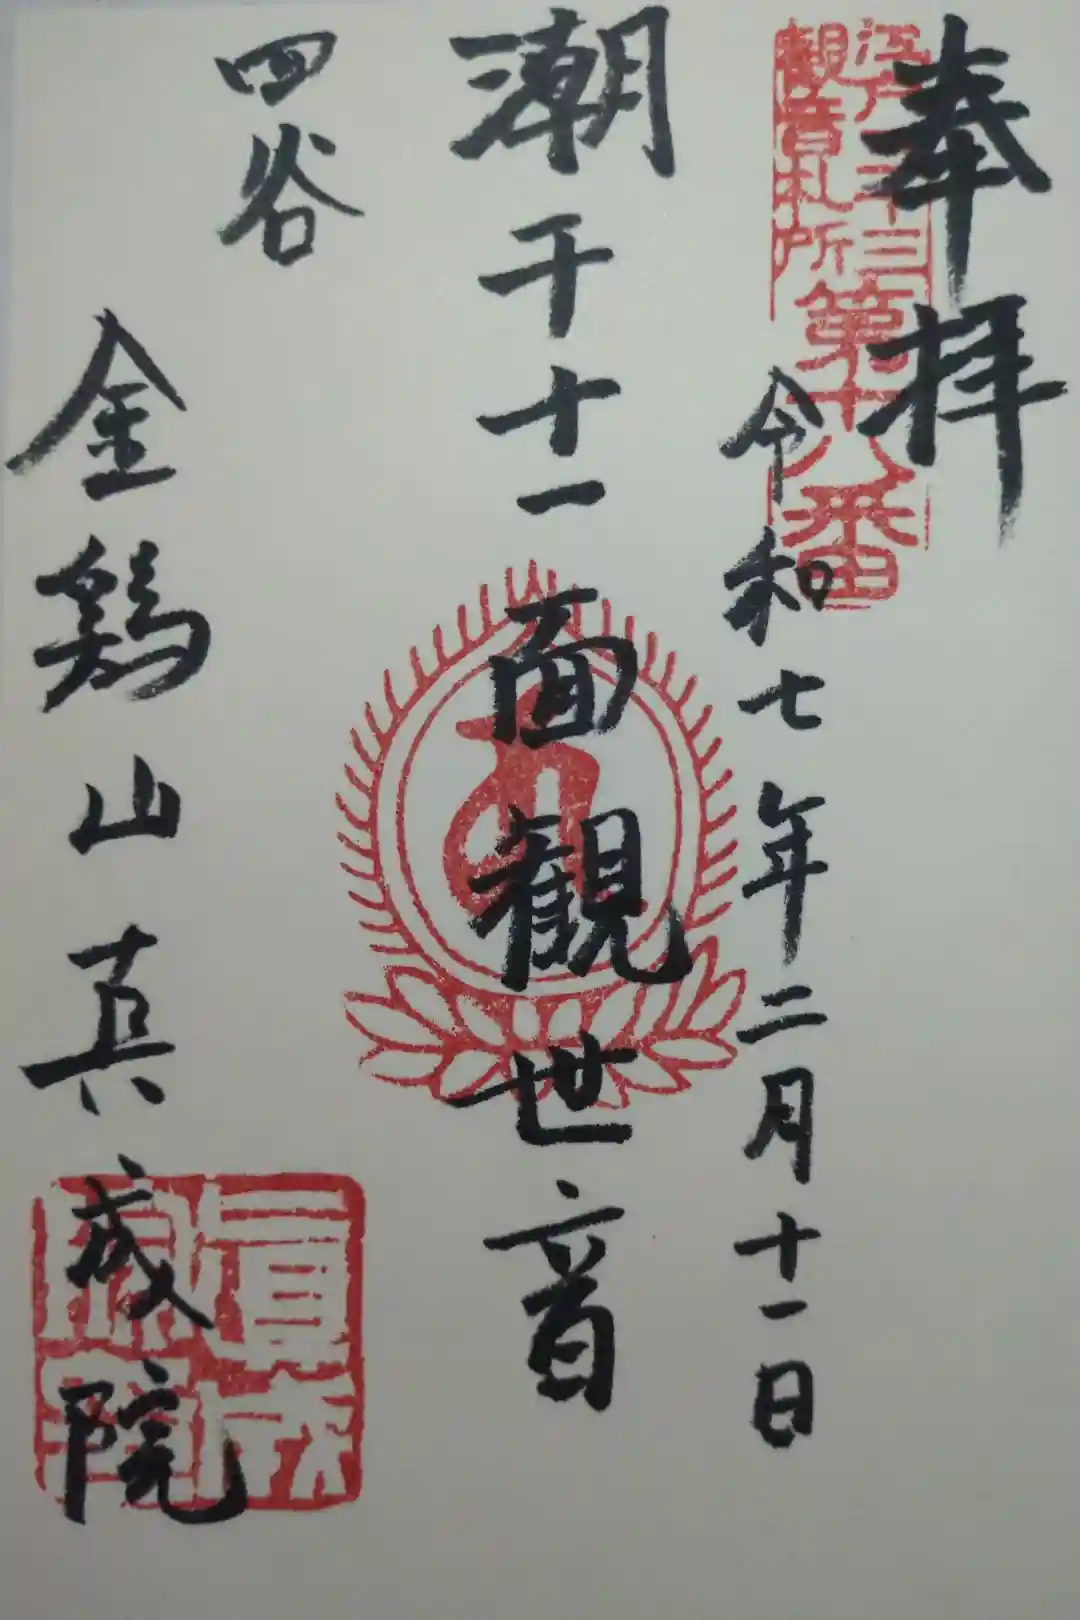 奉拝
江戸三十三
観音札所
第十八番
令和七年二月十一日
潮干十一面観世音
四谷
金鶏山真成院